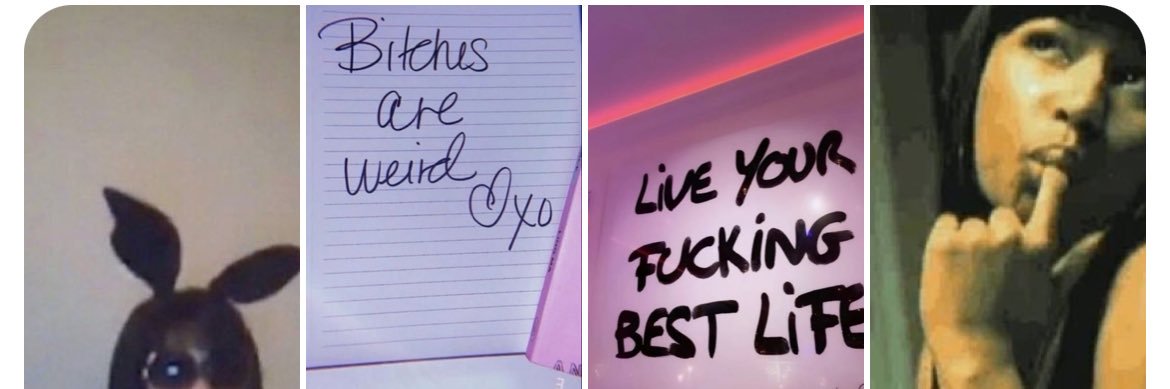 Bitches
are
weird
xo
LIVE YOUR
FUCKING
BEST LIFE